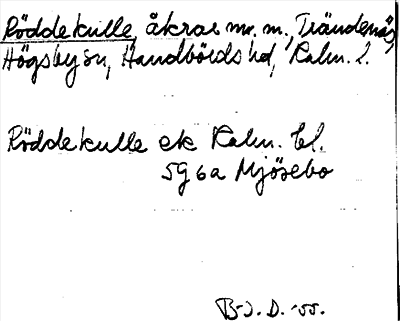 Röddekulle, åkrar m. m., Trändenäs,
Högsby sn, Handbörds hd, Kalm. l.
Röddekulle ek Kalm. bl.
5G 6a Mjösebo
B-J. D. -55.